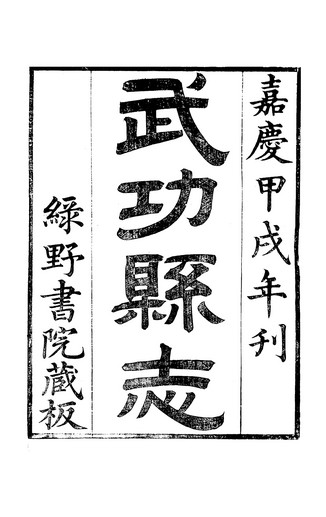 嘉慶甲戌年刊
武功縣志
綠野書院藏板